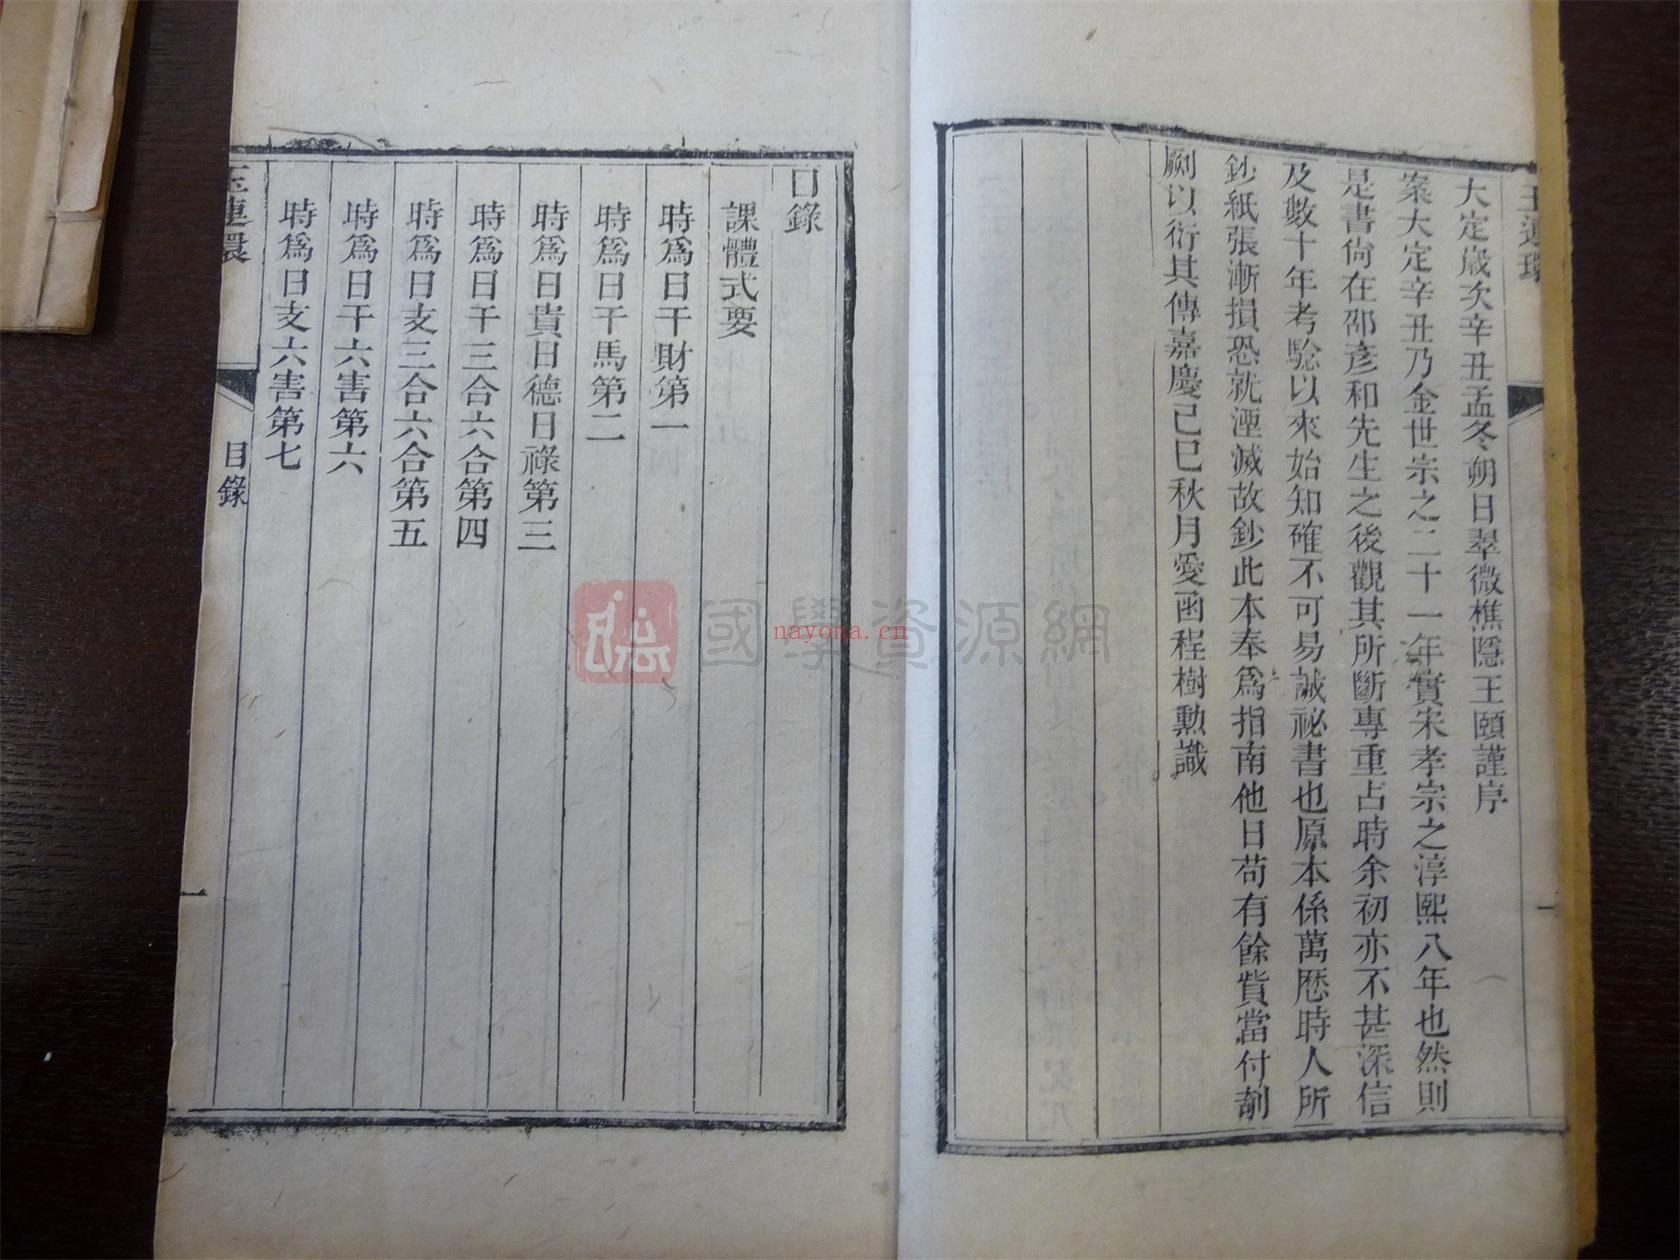 玉連環
大定歲次辛丑孟冬朔日翠微樵隱王頤謹序
案大定辛丑乃金世宗之二十一年實宋孝宗之淳熙八年也然則
是書尙在邵彥和先生之後觀其所斷專重占時余初亦不甚深信
及數十年考驗以來始知確不可易誠祕書也原本係萬厯時人所
鈔紙張漸損恐就湮滅故鈔此本奉爲指南他日苟有餘貲當付剞
劂以衍其傳嘉慶己巳秋月愛函程樹勲識
一
目錄
課體式要
時爲日干財第一
時爲日干馬第二
時爲日貴日德日祿第三
時爲日干三合六合第四
時爲日支三合六合第五
時爲日干六害第六
時爲日支六害第七
玉連環
目錄
一
國學資源網
nayona.cn